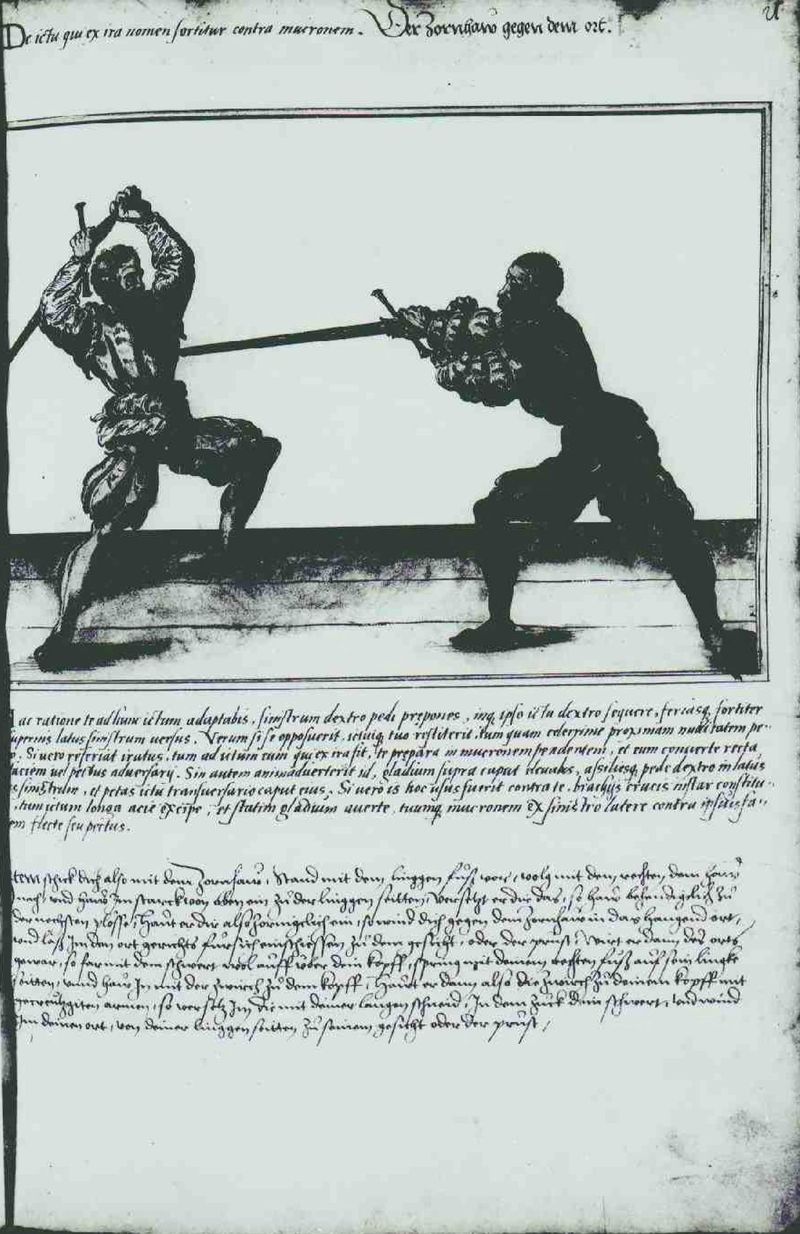 De ictu qui ex ira nomen sortitur contra mucronem. Der Zornhaw gegen dem ort.
ac ratione te ad hunc ictum adaptabis, sinistrum dextro pedi prepones, inq. ipso ictu dextro sequere, feriasq. fortiter
supernis latus sinistrum versus. Verum si se opposuerit, ictuiq. tuo restiterit, tum quam celerrime proximam nuditatem pe-
Si vero referiat iratus, tum ad ictum eum qui ex ira fit, te prepara in mucronem pendentem, et eum converte recta
faciem vel pectus adversarij. Sin autem animadverterit id, gladium supra caput elevabis, assiliesq. pede dextro in latus
sinistrum, et petas ictu transversario caput eius. Si vero is hoc usus fuerit contra te, brachijs crucis instar constitu-
tum ictum longa acie excipe, et statim gladium averte, tuumq. mucronem ex sinistro latere contra ipsius fa-
em flecte seu pectus.
tem schick dich also mit dem Zornhaw, Stand mit dem linggen fuß vor, volg mit dem rechten dem haw
nach, vnd haw Im starck von oben ein zu der linggen seitten, versetzt er dir das, so haw behendigklich zu
der nechsten plosse, Hawt er dir also zorngklich ein, so wind dich gegen dem Zornhaw in das hangend ort,
vnd laß Im den ort gerichts für sich einschiessen zu dem gesicht, oder der prust, Wirt er dann des orts
gewar, so far mit dem schwert wol auff vber dein kopff, spring mit deinem rechten fuß auf sein lingke
seitten, vnnd haw In mit der zwirch zu dem kopff, Hawt er dann also die zwirch zu deinem kopff mit
armen, so versetz Im die mit deiner langen schneid, In dem zuck dein schwert, vnd wind
Im deinen ort, von deiner linggen seitten zu seinem gesicht oder der prust,